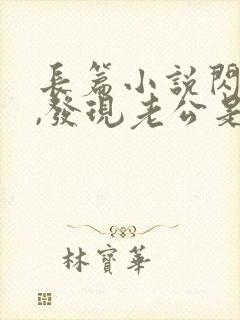 長篇小說閃
,發現老公是
林寶華